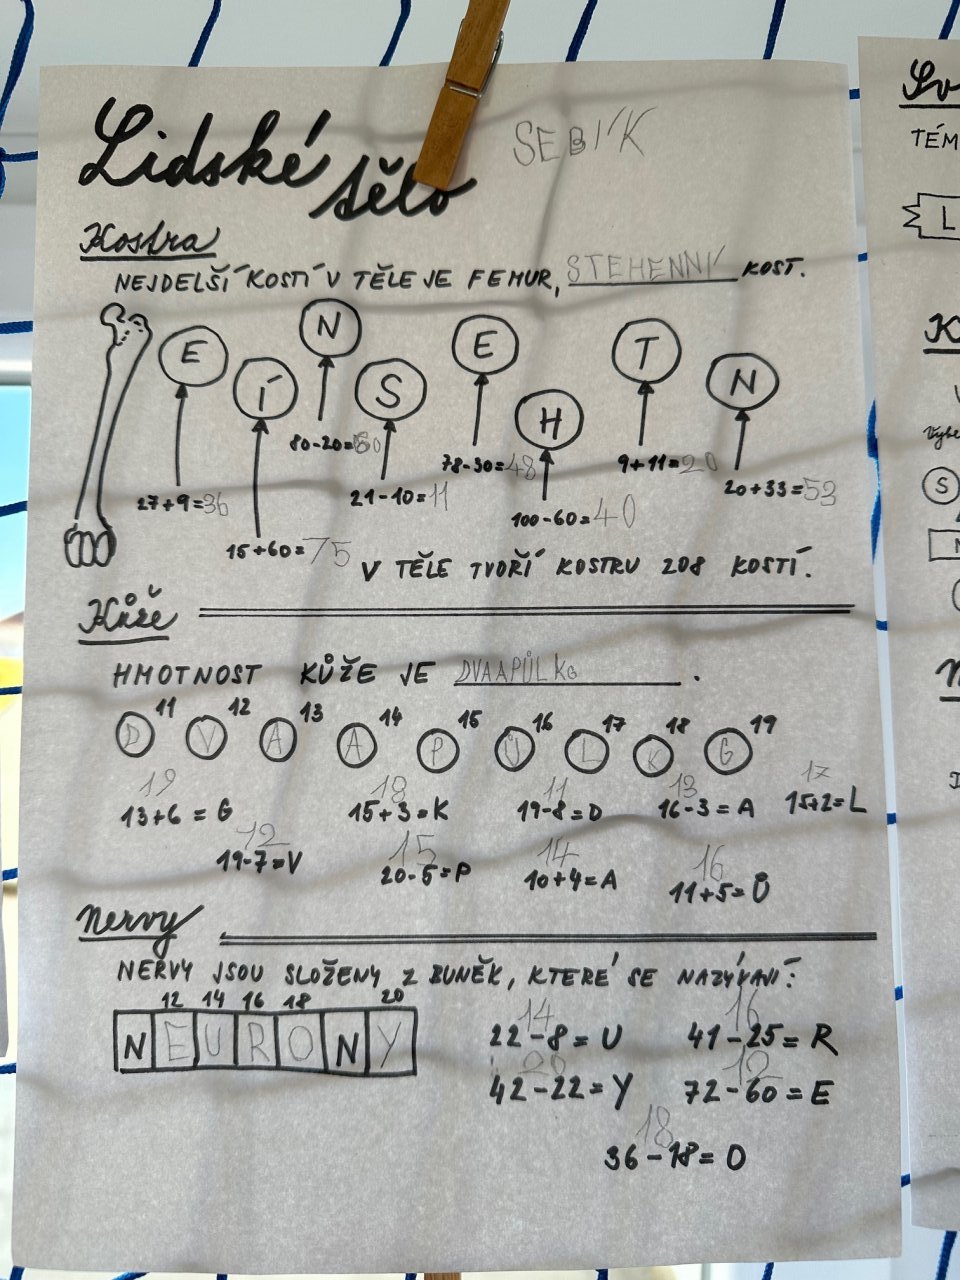 Lidské tělo
SEBÍK
Kostra
NEJDELŠÍ KOSTÍ V TĚLE JE FEMUR, STEHENNÍ KOST.
E Í N S E H T N
80-20=60
78-30=48
9+11=20
27+9=36
21-10=11
20+33=53
100-60=40
15+60=75
V TĚLE TVOŘÍ KOSTRU 208 KOSTÍ.
Kůže
HMOTNOST KŮŽE JE DVAAPŮLKG.
11 12 13 14 15 16 17 18 19
D V A A P Ů L K G
19 18 11 13 17
13+6=G 15+3=K 19-8=D 16-3=A 15+2=L
12 15 14 16
19-7=V 20-5=P 10+4=A 11+5=Ů
Nervy
NERVY JSOU SLOŽENY Z BUNĚK, KTERÉ SE NAZÝVAJÍ:
12 14 16 18 20
N E U R O N Y
14 16
22-8=U 41-25=R
20 12
42-22=Y 72-60=E
18
36-18=O
TÉM
L
S